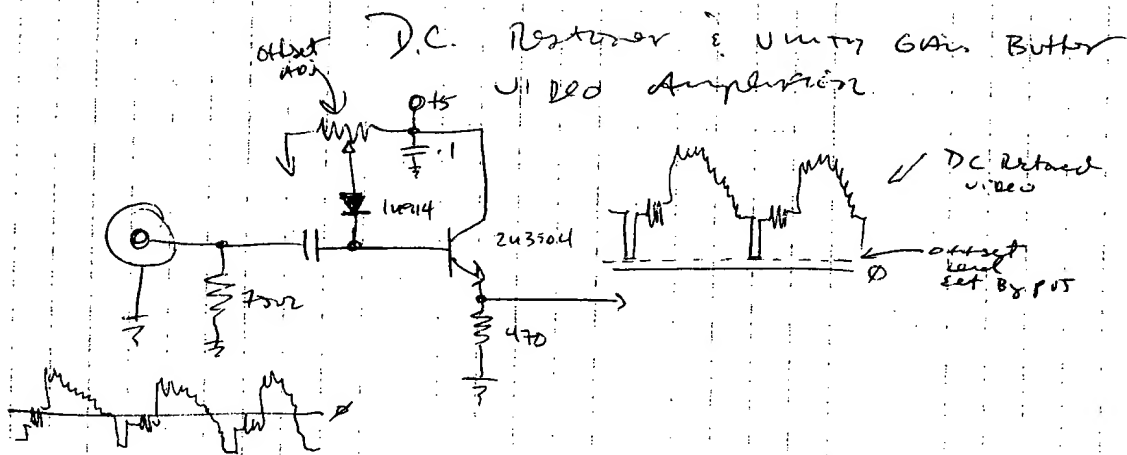 D.C. Restorer & Unity Gain Buffer
Video Amplifier
Offset
ADJ
+5
.1
1N914
2N3904
75Ω
470
DC Restored
video
offset
level
set By pot
Ø
Ø